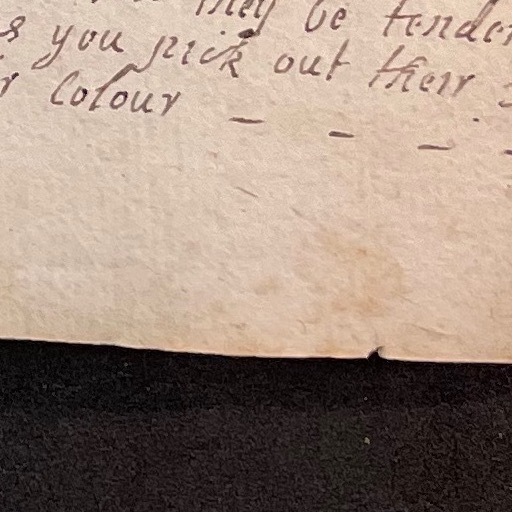 they be tender
you pick out their
Colour - - - -